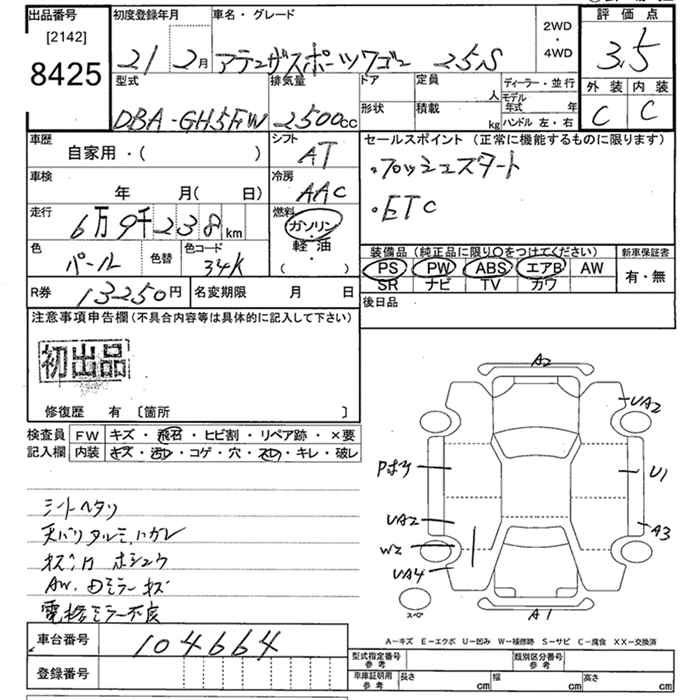 出品番号
[2142]
8425
初度登録年月
21 2月
車名・グレード
アテンザスポーツワゴン 25S
2WD
・
4WD
評価点
3.5
外装 内装
C C
型式
DBA-GH5FW
排気量
2500cc
ドア
形状
定員
人
積載
kg
ディーラー・並行
モデル年式 年
ハンドル 左・右
車歴
自家用・( )
シフト
AT
車検
年 月( 日)
冷房
AAC
走行
6万9千238km
燃料
ガソリン
・
軽油
( )
色
パール
色替
色コード
34K
R券
13250円
名変期限 月 日
セールスポイント (正常に機能するものに限ります)
・プッシュスタート
・ETC
装備品 (純正品に限り○をつけてください)
PS PW ABS エアB AW
SR ナビ TV カワ
新車保証書
有・無
後日品
注意事項申告欄(不具合内容等は具体的に記入して下さい)
初出品
修復歴 有 〔箇所 〕
検査員
記入欄
FW キズ・飛石・ヒビ割・リペア跡・×要
内装 キズ・汚レ・コゲ・穴・スレ・キレ・破レ
シートヘタリ
天バリタルミ、ハガレ
AW、Dミラーキズ
電格ミラー不良
A2
UA2
U1
A3
UA2
W2
UA4
A1
スペア
A-キズ E-エクボ U-凹み W-補修跡 S-サビ C-腐食 XX-交換済
車台番号
104664
登録番号
型式指定番号
参考
類別区分番号
参考
車庫証明用
参考
長さ cm
幅 cm
高さ cm